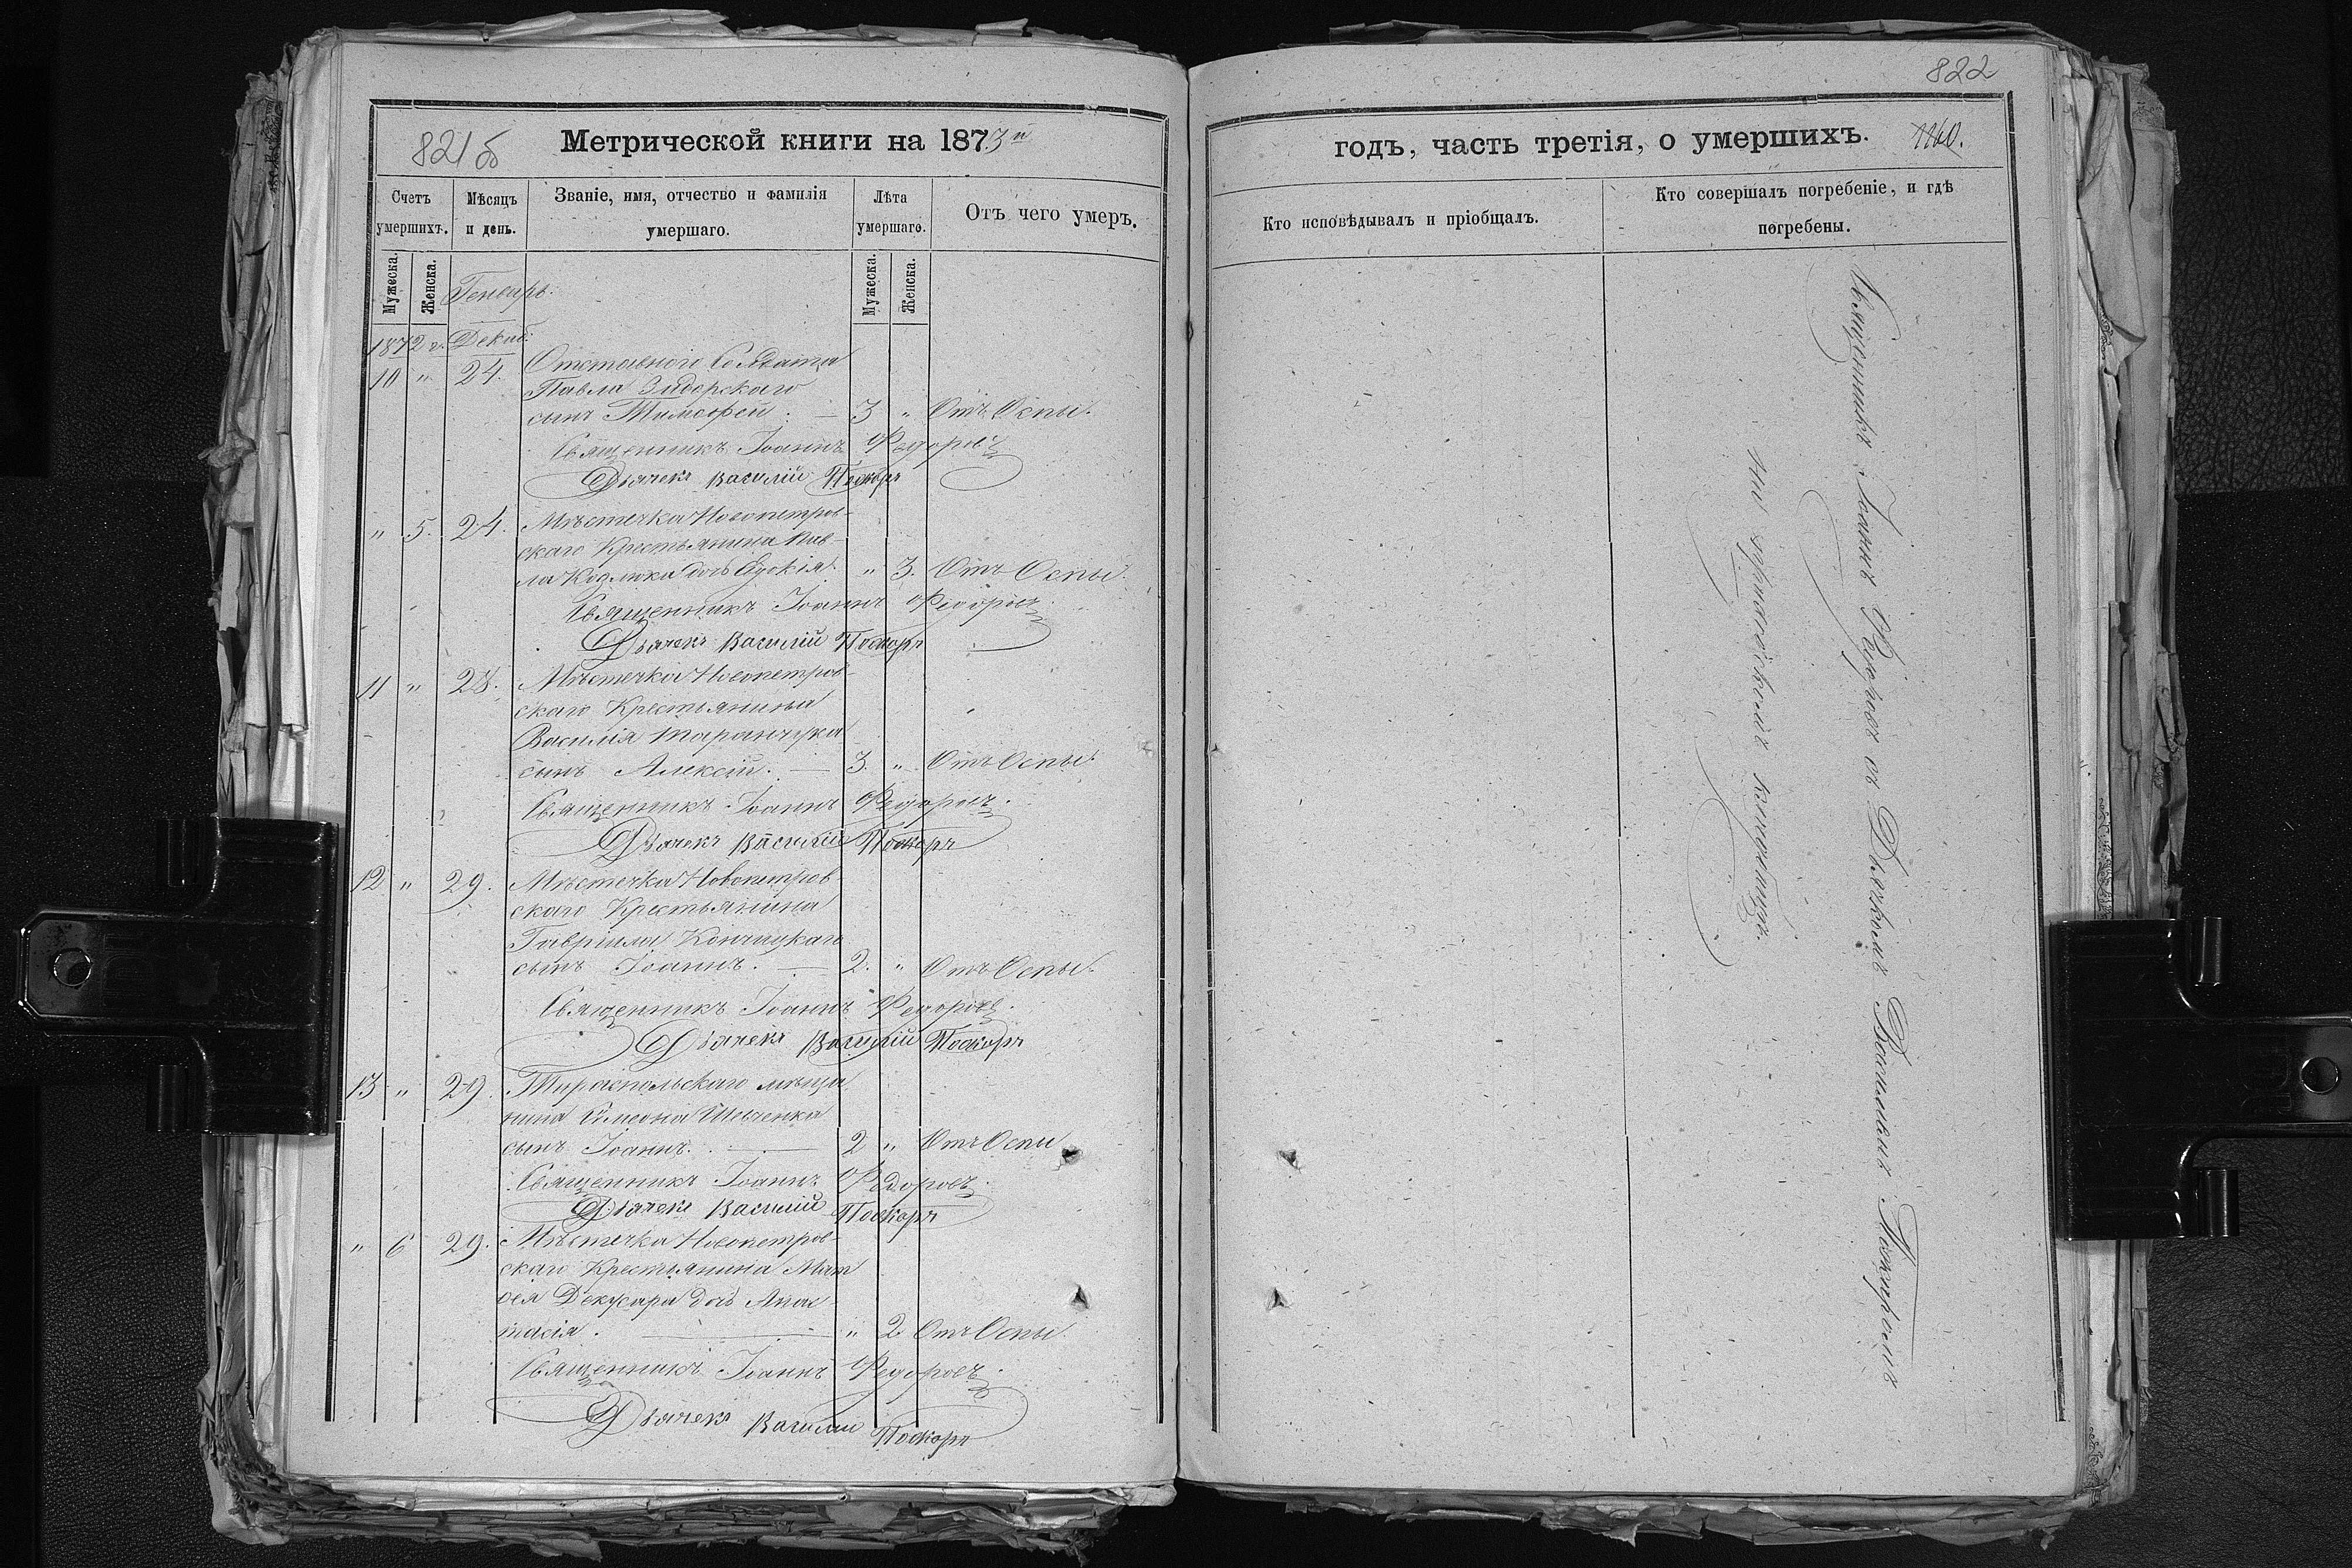 821б
Метрической книги на 1873й
Счетъ умершихъ.
Мѣсяцъ и день.
Званіе, имя, отчество и фамилія умершаго.
Лѣта умершаго.
Отъ чего умеръ.
Мужеска.
Женска.
Мужеска.
Женска.
Генварь.
1872 г. Декаб:
10 " 24. Отставнаго Солдата
Павла Зидорскаго
сынъ Тимофей. — 3 " Отъ Оспы.
Священникъ Іоаннъ Федоровъ
Дьячекъ Василій
" 5. 24. Мѣстечка Новопетров-
скаго Крестьянина Пав-
ла Козлюка дочь Евдокія. " 3. Отъ Оспы.
Священникъ Іоаннъ Федоровъ
Дьячекъ Василій
11 " 28. Мѣстечка Новопетров-
скаго Крестьянина
Василія
сынъ Алексій. — 3. " Отъ Оспы.
Священникъ Іоаннъ Федоровъ.
Дьячекъ Василій
12 " 29. Мѣстечка Новопетров
скаго Крестьянина
Гавріила
сынъ Іоаннъ. — 2. " Отъ Оспы.
Священникъ Іоаннъ Федоровъ.
Дьячекъ Василій
13 " 29. Тираспольскаго мѣща
нина Симеона
сынъ Іоаннъ. — 2 " Отъ Оспы
Священникъ Іоаннъ Федоровъ.
Дьячекъ Василій
" 6 29. Мѣстечка Новопетров-
скаго Крестьянина Мат
ѳея Декусара дочь Анас
тасія. — " 2 Отъ Оспы.
Священникъ Іоаннъ Федоровъ.
Дьячекъ Василій
822
годъ, часть третія, о умершихъ.
1160.
Кто исповѣдывалъ и пріобщалъ.
Кто совершалъ погребеніе, и гдѣ погребены.
Священникъ Іоаннъ Федоровъ съ Дьячкомъ Василіемъ
на приходскомъ кладбищѣ.